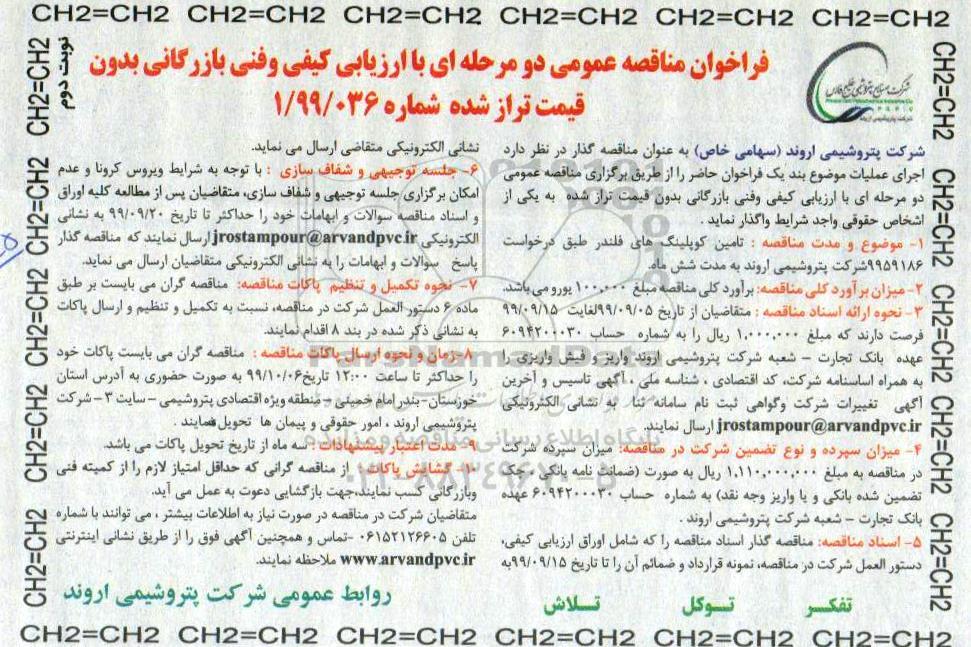 CH2=CH2 CH2=CH2 CH2=CH2 CH2=CH2 CH2=CH2 CH2=CH2
نوبت دوم
فراخوان مناقصه عمومی دو مرحله ای با ارزیابی کیفی وفنی بازرگانی بدون
قیمت تراز شده شماره ۱/۹۹/۰۳۶
شرکت صنایع پتروشیمی خلیج فارس
شرکت پتروشیمی اروند
شرکت پتروشیمی اروند (سهامی خاص) به عنوان مناقصه گذار در نظر دارد
اجرای عملیات موضوع بند یک فراخوان حاضر را از طریق برگزاری مناقصه عمومی
دو مرحله ای با ارزیابی کیفی وفنی بازرگانی بدون قیمت تراز شده به یکی از
اشخاص حقوقی واجد شرایط واگذار نماید .
۱- موضوع و مدت مناقصه : تامین کوپلینگ های فلندر طبق درخواست
۹۹۵۹۱۸۶شرکت پتروشیمی اروند به مدت شش ماه.
۲- میزان برآورد کلی مناقصه: برآورد کلی مناقصه مبلغ ۱۰۰,۰۰۰ یورو می باشد.
۳- نحوه ارائه اسناد مناقصه : متقاضیان از تاریخ ۹۹/۰۹/۰۵لغایت ۹۹/۰۹/۱۵
فرصت دارند که مبلغ ۱.۰۰۰.۰۰۰ ریال را به شماره حساب ۶۰۹۴۲۰۰۰۳۰
عهده بانک تجارت – شعبه شرکت پتروشیمی اروند واریز و فیش واریزی را
به همراه اساسنامه شرکت، کد اقتصادی ، شناسه ملی ، آگهی تاسیس و آخرین
آگهی تغییرات شرکت وگواهی ثبت نام سامانه ثنا به نشانی الکترونیکی
jrostampour@arvandpvc.ir ارسال نمایند.
۴- میزان سپرده و نوع تضمین شرکت در مناقصه: میزان سپرده شرکت
در مناقصه به مبلغ ۱.۱۱۰,۰۰۰,۰۰۰ ریال به صورت (ضمانت نامه بانکی ، چک
تضمین شده بانکی و یا واریز وجه نقد) به شماره حساب ۶۰۹۴۲۰۰۰۳۰ عهده
بانک تجارت – شعبه شرکت پتروشیمی اروند .
۵- اسناد مناقصه: مناقصه گذار اسناد مناقصه را که شامل اوراق ارزیابی کیفی،
دستور العمل شرکت در مناقصه، نمونه قرارداد و ضمائم آن را تا تاریخ ۹۹/۰۹/۱۵به
نشانی الکترونیکی متقاضی ارسال می نماید.
۶- جلسه توجیهی و شفاف سازی : با توجه به شرایط ویروس کرونا و عدم
امکان برگزاری جلسه توجیهی و شفاف سازی، متقاضیان پس از مطالعه کلیه اوراق
و اسناد مناقصه سوالات و ابهامات خود را حداکثر تا تاریخ ۹۹/۰۹/۲۰ به نشانی
الکترونیکی jrostampour@arvandpvc.ir ارسال نمایند که مناقصه گذار
پاسخ سوالات و ابهامات را به نشانی الکترونیکی متقاضیان ارسال می نماید.
۷- نحوه تکمیل و تنظیم پاکات مناقصه: مناقصه گران می بایست بر طبق
ماده ۶ دستور العمل شرکت در مناقصه، نسبت به تکمیل و تنظیم و ارسال پاکات
به نشانی ذکر شده در بند ۸ اقدام نمایند.
۸-زمان و نحوه ارسال پاکات مناقصه : مناقصه گران می بایست پاکات خود
را حداکثر تا ساعت ۱۲:۰۰ تاریخ۹۹/۱۰/۰۶ به صورت حضوری به آدرس استان
خوزستان-بندر امام خمینی – منطقه ویژه اقتصادی پتروشیمی – سایت ۳ – شرکت
پتروشیمی اروند ، امور حقوقی و پیمان ها تحویل نمایند .
۹- مدت اعتبار پیشنهادات : سه ماه از تاریخ تحویل پاکات می باشد.
۱۰- گشایش پاکات : از مناقصه گرانی که حداقل امتیاز لازم را از کمیته فنی
وبازرگانی کسب نمایند،جهت بازگشایی دعوت به عمل می آید.
متقاضیان شرکت در مناقصه در صورت نیاز به اطلاعات بیشتر ، می توانند با شماره
تلفن ۰۶۱۵۲۱۲۶۶۰۵ -تماس و همچنین آگهی فوق را از طریق نشانی اینترنتی
www.arvandpvc.ir ملاحظه نمایند.
تفکر توکل تلاش
روابط عمومی شرکت پتروشیمی اروند
ParsNamadData
پایگاه اطلاع رسانی مناقصه و مزایده
۰۲۱-۸۸۳۴۹۶۷۰-۵
CH2=CH2 CH2=CH2 CH2=CH2 CH2=CH2
CH2=CH2 CH2=CH2 CH2=CH2 CH2=CH2
CH2=CH2 CH2=CH2 CH2=CH2 CH2=CH2 CH2=CH2 CH2=CH2